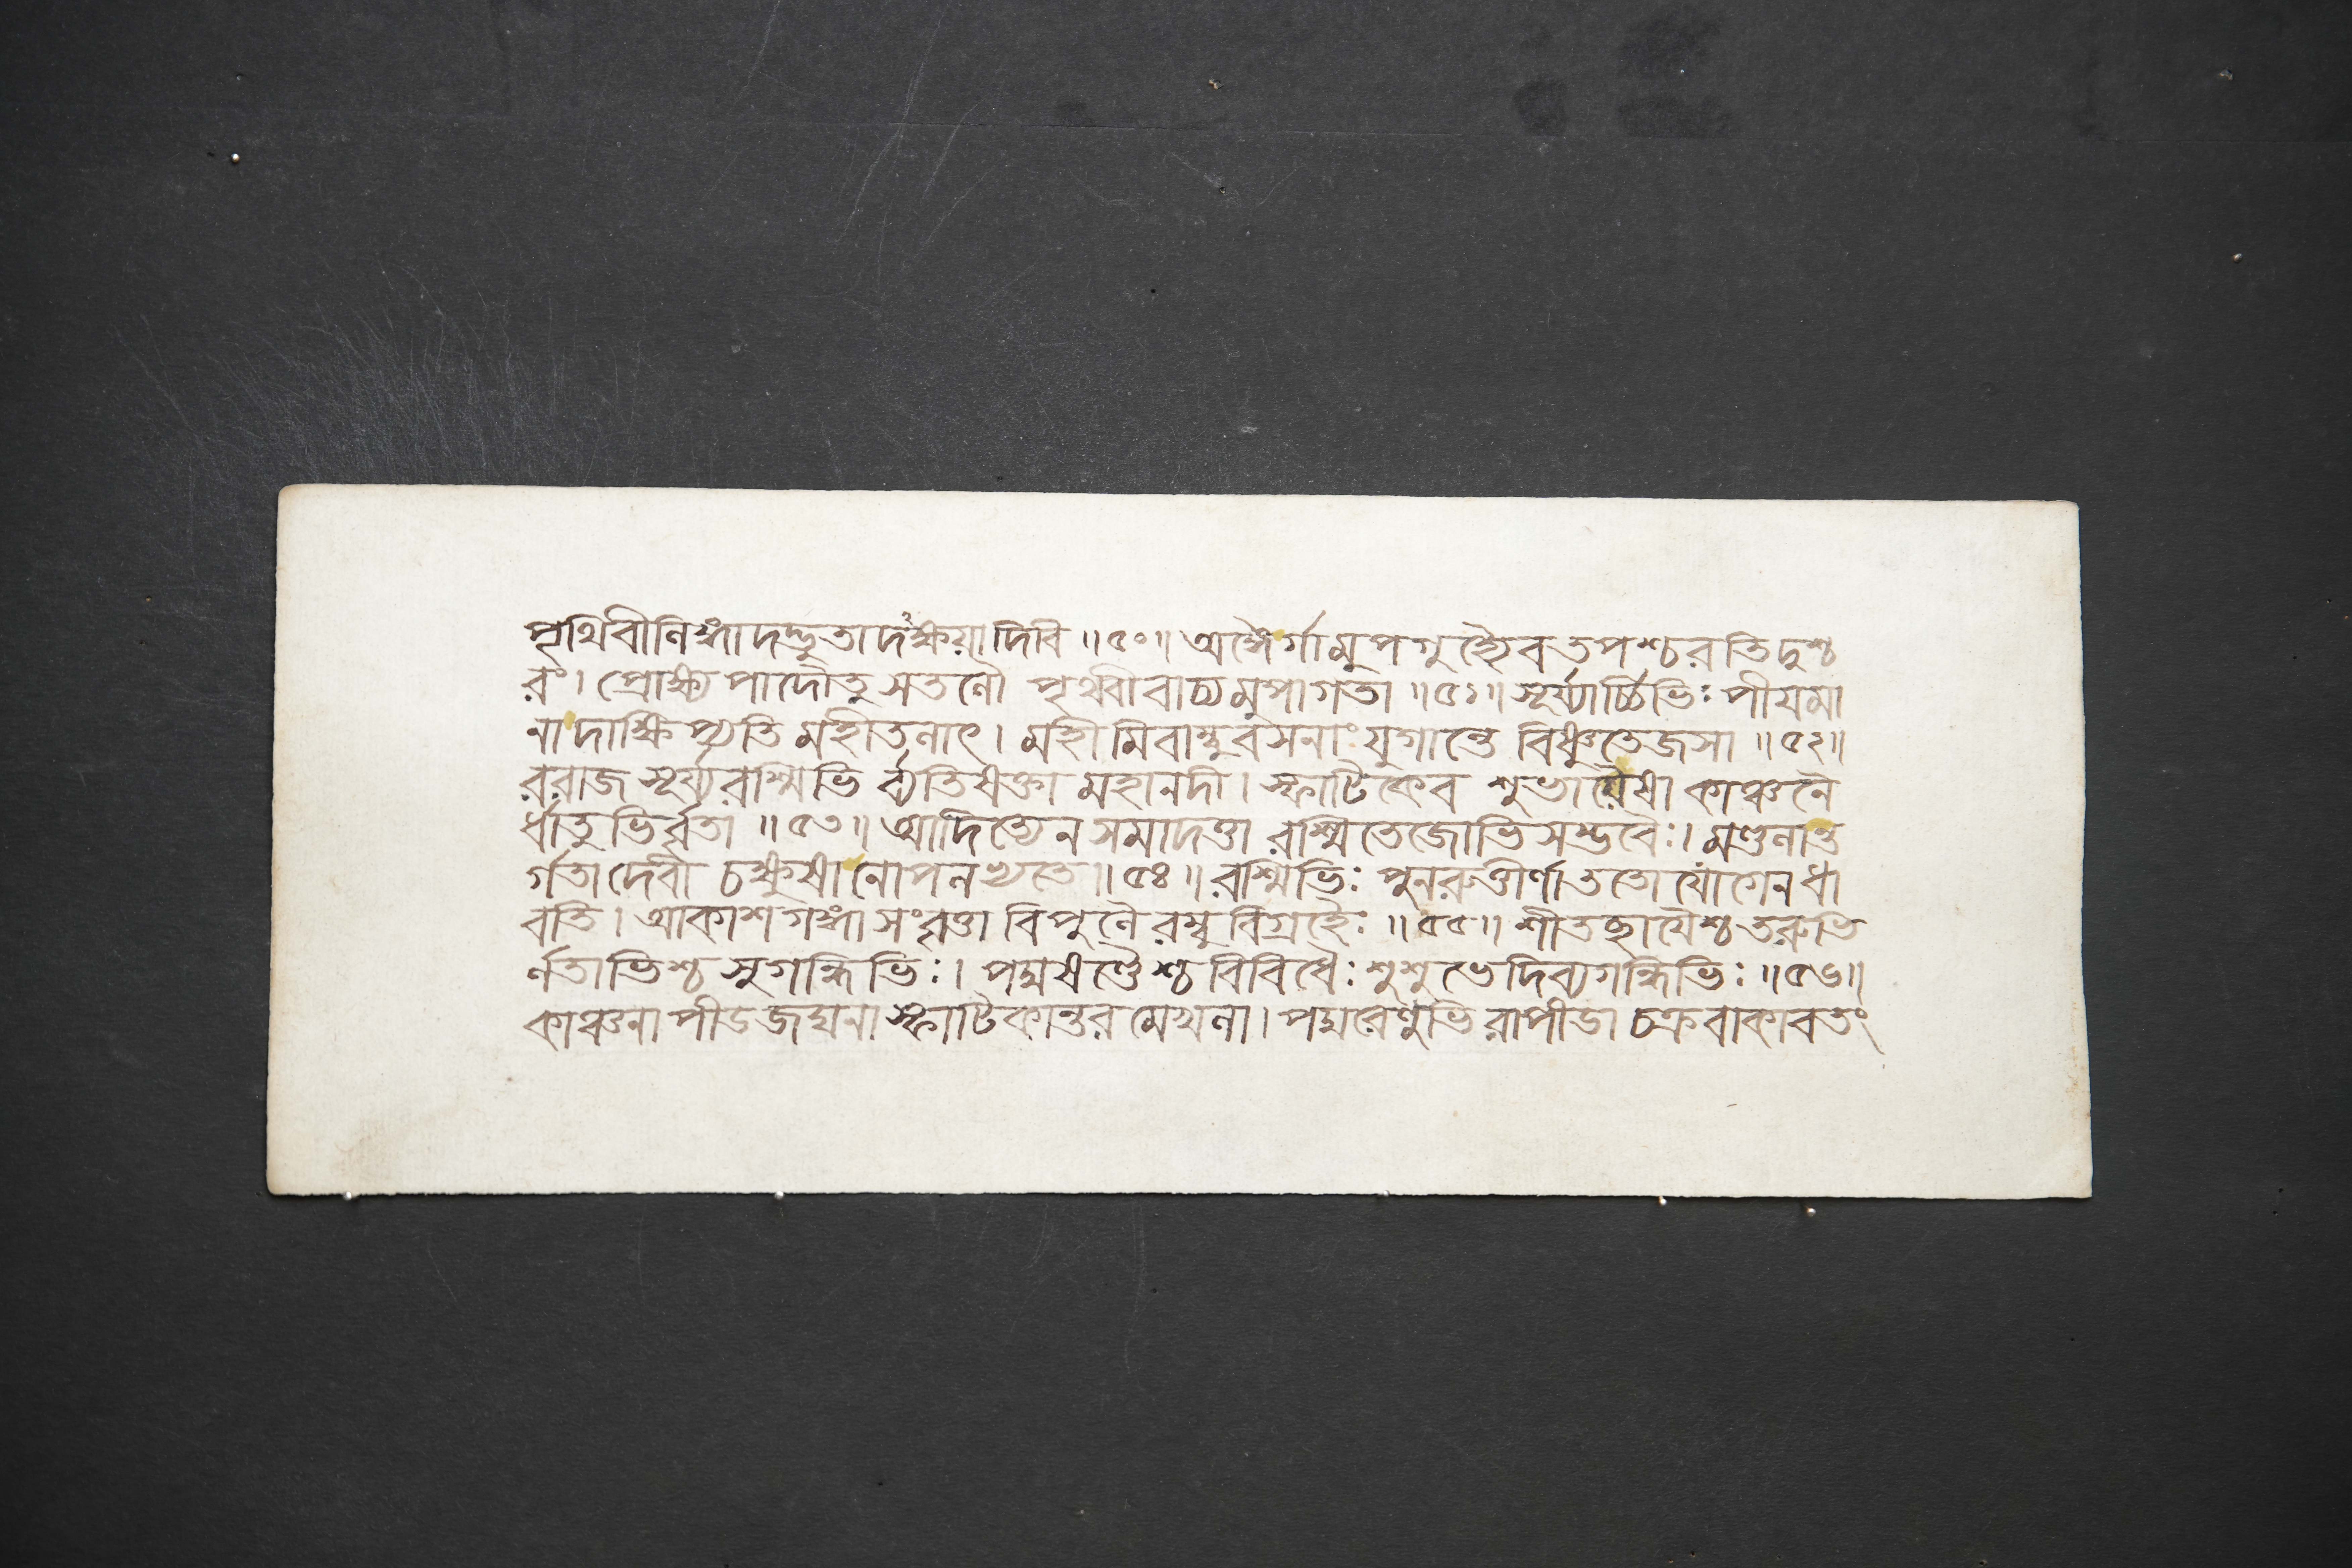 পৃথিবীনিহ্মাদদ্ভুতাদংক্ষয়াদিবি ॥৫০॥ অঙ্গৈর্গামুপগুহ্যৈবতপশ্চরতিদুশ্চ
রং। প্রোক্ষ্য পাদৌতু সতলৌ পৃথিবীবাচ্যমুপাগতা ॥৫১॥ সূর্য্যার্চ্চিভিঃ পীয়মা
লাদাক্ষিপ্যতি মহীতলাৎ। মহীমিবাম্বুবসনাং যুগান্তে বিষ্ণুতেজসা ॥৫২॥
ররাজ সূর্য্যরশ্মিভি র্ব্যতিষক্তা মহানদী। স্ফাটিকেব শুভাযৈষা কাঞ্চনৈ
র্ধাতুভির্বৃতা ॥৫৩॥ আদিত্যেন সমাদত্তা রশ্মিতেজোভিসম্ভবৈঃ। মণ্ডলান্ত
র্গতাদেবী চক্ষুষানোপলভ্যতে ॥৫৪॥ রশ্মিভিঃ পুনরুত্তীর্ণাততো যোগেনধা
বতি। আকাশগঙ্গাসংবৃত্তা বিপুলৈরম্বুবিগ্রহৈঃ ॥৫৫॥ শীতচ্ছায়ৈশ্চতরুভি
র্লতাভিশ্চ সুগন্ধিভিঃ। পদ্মষণ্ডৈশ্চবিবিধৈঃ শুশুভেদিব্যগন্ধিভিঃ ॥৫৬॥
কাঞ্চনাপীডজঘনা স্ফাটিকান্তরমেখলা। পদ্মরেণুভিরাপীডা চক্রবাকাবতং